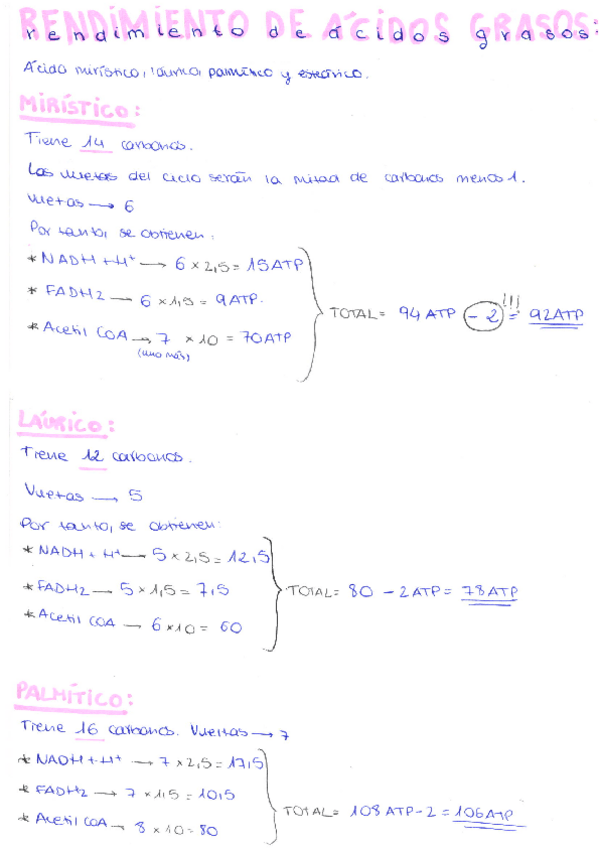 RENDIMIENTO DE ÁCIDOS GRASOS:
rendimiento de ácidos grasos:
Ácido mirístico, láurico, palmítico y esteárico.
MIRÍSTICO:
Tiene 14 carbonos.
Las vueltas del ciclo serán la mitad de carbonos menos 1.
Vueltas → 6
Por tanto, se obtienen:
* NADH + H⁺ → 6 × 2,5 = 15 ATP
* FADH2 → 6 × 1,5 = 9 ATP.
* Acetil COA → 7 × 10 = 70 ATP
(uno más)
TOTAL = 94 ATP - 2 = 92 ATP
!!!
LÁURICO:
Tiene 12 carbonos.
Vueltas → 5
Por tanto, se obtienen:
* NADH + H⁺ → 5 × 2,5 = 12,5
* FADH2 → 5 × 1,5 = 7,5
* Acetil COA → 6 × 10 = 60
TOTAL = 80 - 2 ATP = 78 ATP
PALMÍTICO:
Tiene 16 carbonos. Vueltas → 7
* NADH + H⁺ → 7 × 2,5 = 17,5
* FADH2 → 7 × 1,5 = 10,5
* Acetil COA → 8 × 10 = 80
TOTAL = 108 ATP - 2 = 106 ATP